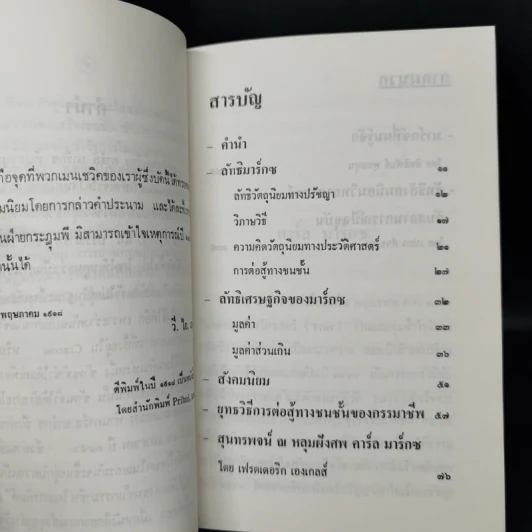 คือจุดที่พวกเมนเชวิคของเราผู้ซึ่งบัดนี้ได้
นิยมโดยการกล่าวคำประณาม และได้
ฝ่ายกระฎุมพี มิสามารถเข้าใจเหตุการณ์
นั้นได้
พฤษภาคม ๑๙๑๘
วี. ไอ.
ตีพิมพ์ในปี ๑๙๑๘ เป็น
โดยสำนักพิมพ์ Priboi
สารบัญ
– คำนำ
– ลัทธิมาร์กซ ๑๑
ลัทธิวัตถุนิยมทางปรัชญา ๑๒
วิภาษวิธี ๑๗
ความคิดวัตถุนิยมทางประวัติศาสตร์ ๒๑
การต่อสู้ทางชนชั้น ๒๗
– ลัทธิเศรษฐกิจของมาร์กซ ๓๒
มูลค่า ๓๓
มูลค่าส่วนเกิน ๓๖
– สังคมนิยม ๕๑
– ยุทธวิธีการต่อสู้ทางชนชั้นของกรรมาชีพ ๕๗
– สุนทรพจน์ ณ หลุมฝังศพ คาร์ล มาร์กซ
โดย เฟรดเดอริก เองเกลส์ ๗๖